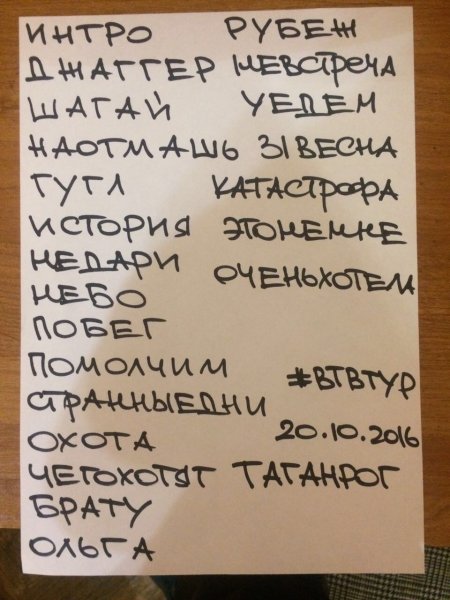 ИНТРО
ДЖАГГЕР
ШАГАЙ
НАОТМАШЬ
ГУГЛ
ИСТОРИЯ
НЕДАРИ
НЕБО
ПОБЕГ
ПОМОЛЧИМ
СТРАННЫЕДНИ
ОХОТА
ЧЕГОХОТЯТ
БРАТУ
ОЛЬГА
РУБЕЖ
НЕВСТРЕЧА
УЕДЕМ
31ВЕСНА
КАТАСТРОФА
ЭТОНЕМНЕ
ОЧЕНЬХОТЕЛА
#ВТВТУР
20.10.2016
ТАГАНРОГ